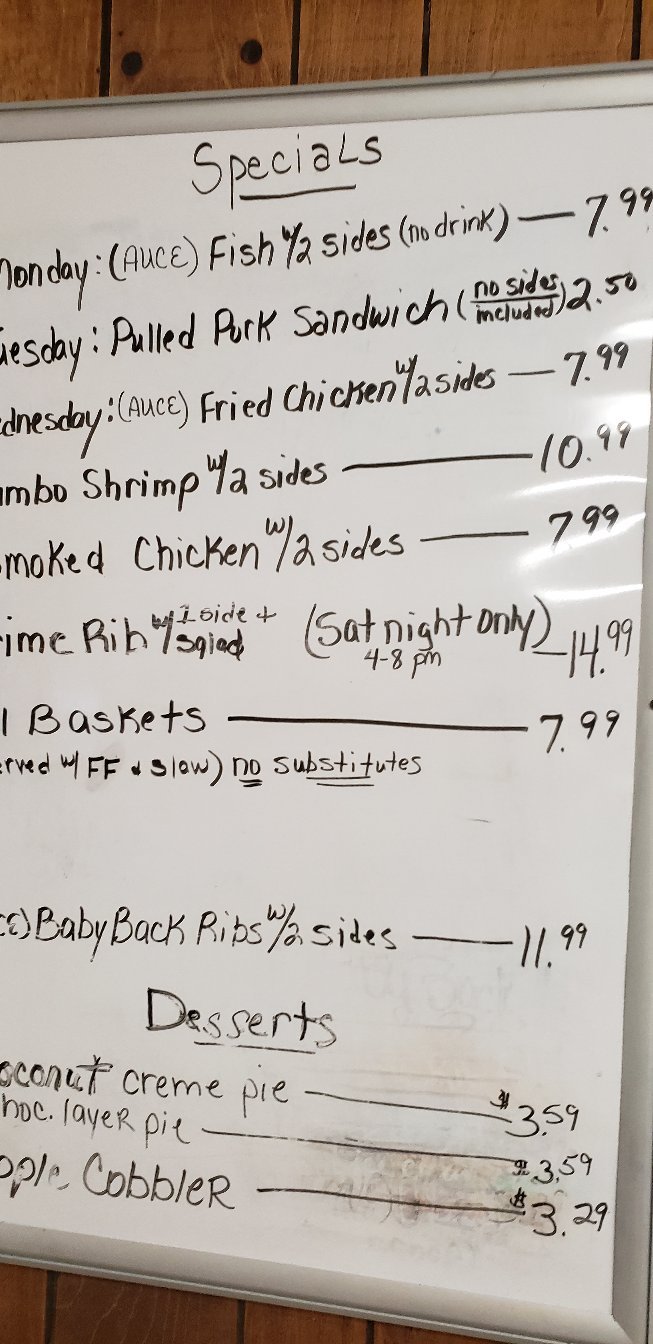 Specials
Monday: (AUCE) Fish w/2 sides (no drink) — 7.99
uesday: Pulled Pork Sandwich (no sides included) 2.50
dnesday: (AUCE) Fried Chicken w/2 sides — 7.99
mbo Shrimp w/2 sides — 10.99
moked Chicken w/2 sides — 7.99
ime Rib w/1 side + salad (Sat night only) — 14.99
4-8 pm
l Baskets — 7.99
erved w/ FF & slaw) no substitutes
CE) Baby Back Ribs w/2 sides — 11.99
Desserts
oconut creme pie — $3.59
hoc. layer pie — $3.59
pple Cobbler — $3.29